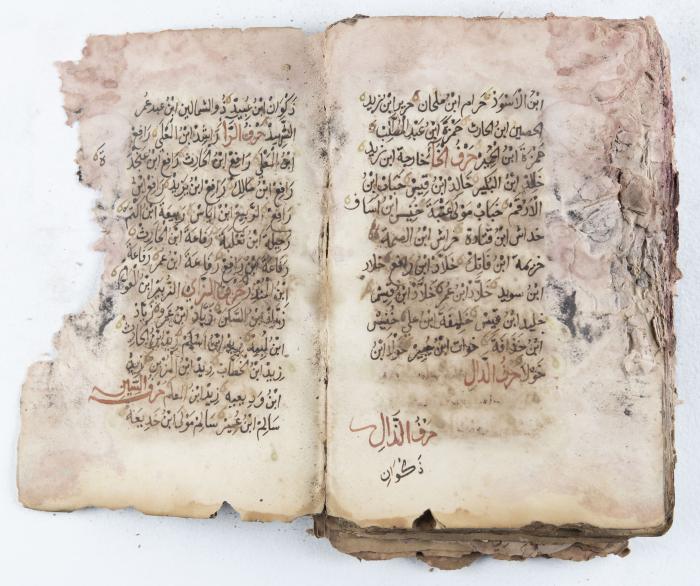 ابن الاسود حرام ابن ملحان حريز ابن زيد
الحصين ابن الحارث حمزة ابن عبد المطلب
حمزة ابن الحمير حرف الخا خارجة ابن زيد
خالد ابن البكير خالد ابن قيس خباب ابن
الارقم خباب مولى عتبة خنيس ابن اساف
خداش ابن قتادة خراش ابن الصمة
خزيمة ابن فاتك خلاد ابن رافع خلاد
ابن سويد خلاد ابن عمر خلاد ابن قيس
خليد ابن قيس خليفة ابن عدي خنيس
ابن حذافة خوات ابن جبير خولا ابن
خولا حرف الدال
حرف الذال
ذكوان
ذكوان ابن عبيد ذو الشمالين ابن عبد عمر
الشهيد حرف الرا راشد ابن المعلى رافع
ابن المعلى رافع ابن الحارث رافع ابن عنجدة
رافع ابن مالك رافع ابن يزيد رافع ابن
ربيع ابن اياس ربيعة ابن
رحيلة ابن ثعلبة رفاعة ابن الحارث
رفاعة ابن رافع رفاعة ابن عمر رفاعة
ابن المنذر حرف الزاي الزبير ابن العوام
ابن السكن زياد ابن عمر زياد
ابن لبيد زيد ابن اسلم زيد ابن الحارث
زيد ابن خطاب زيد ابن المزين زيد
ابن وديعه زيد ابن المعلا حرف السين
سالم ابن عمير سالم مولا ابن حذيفه